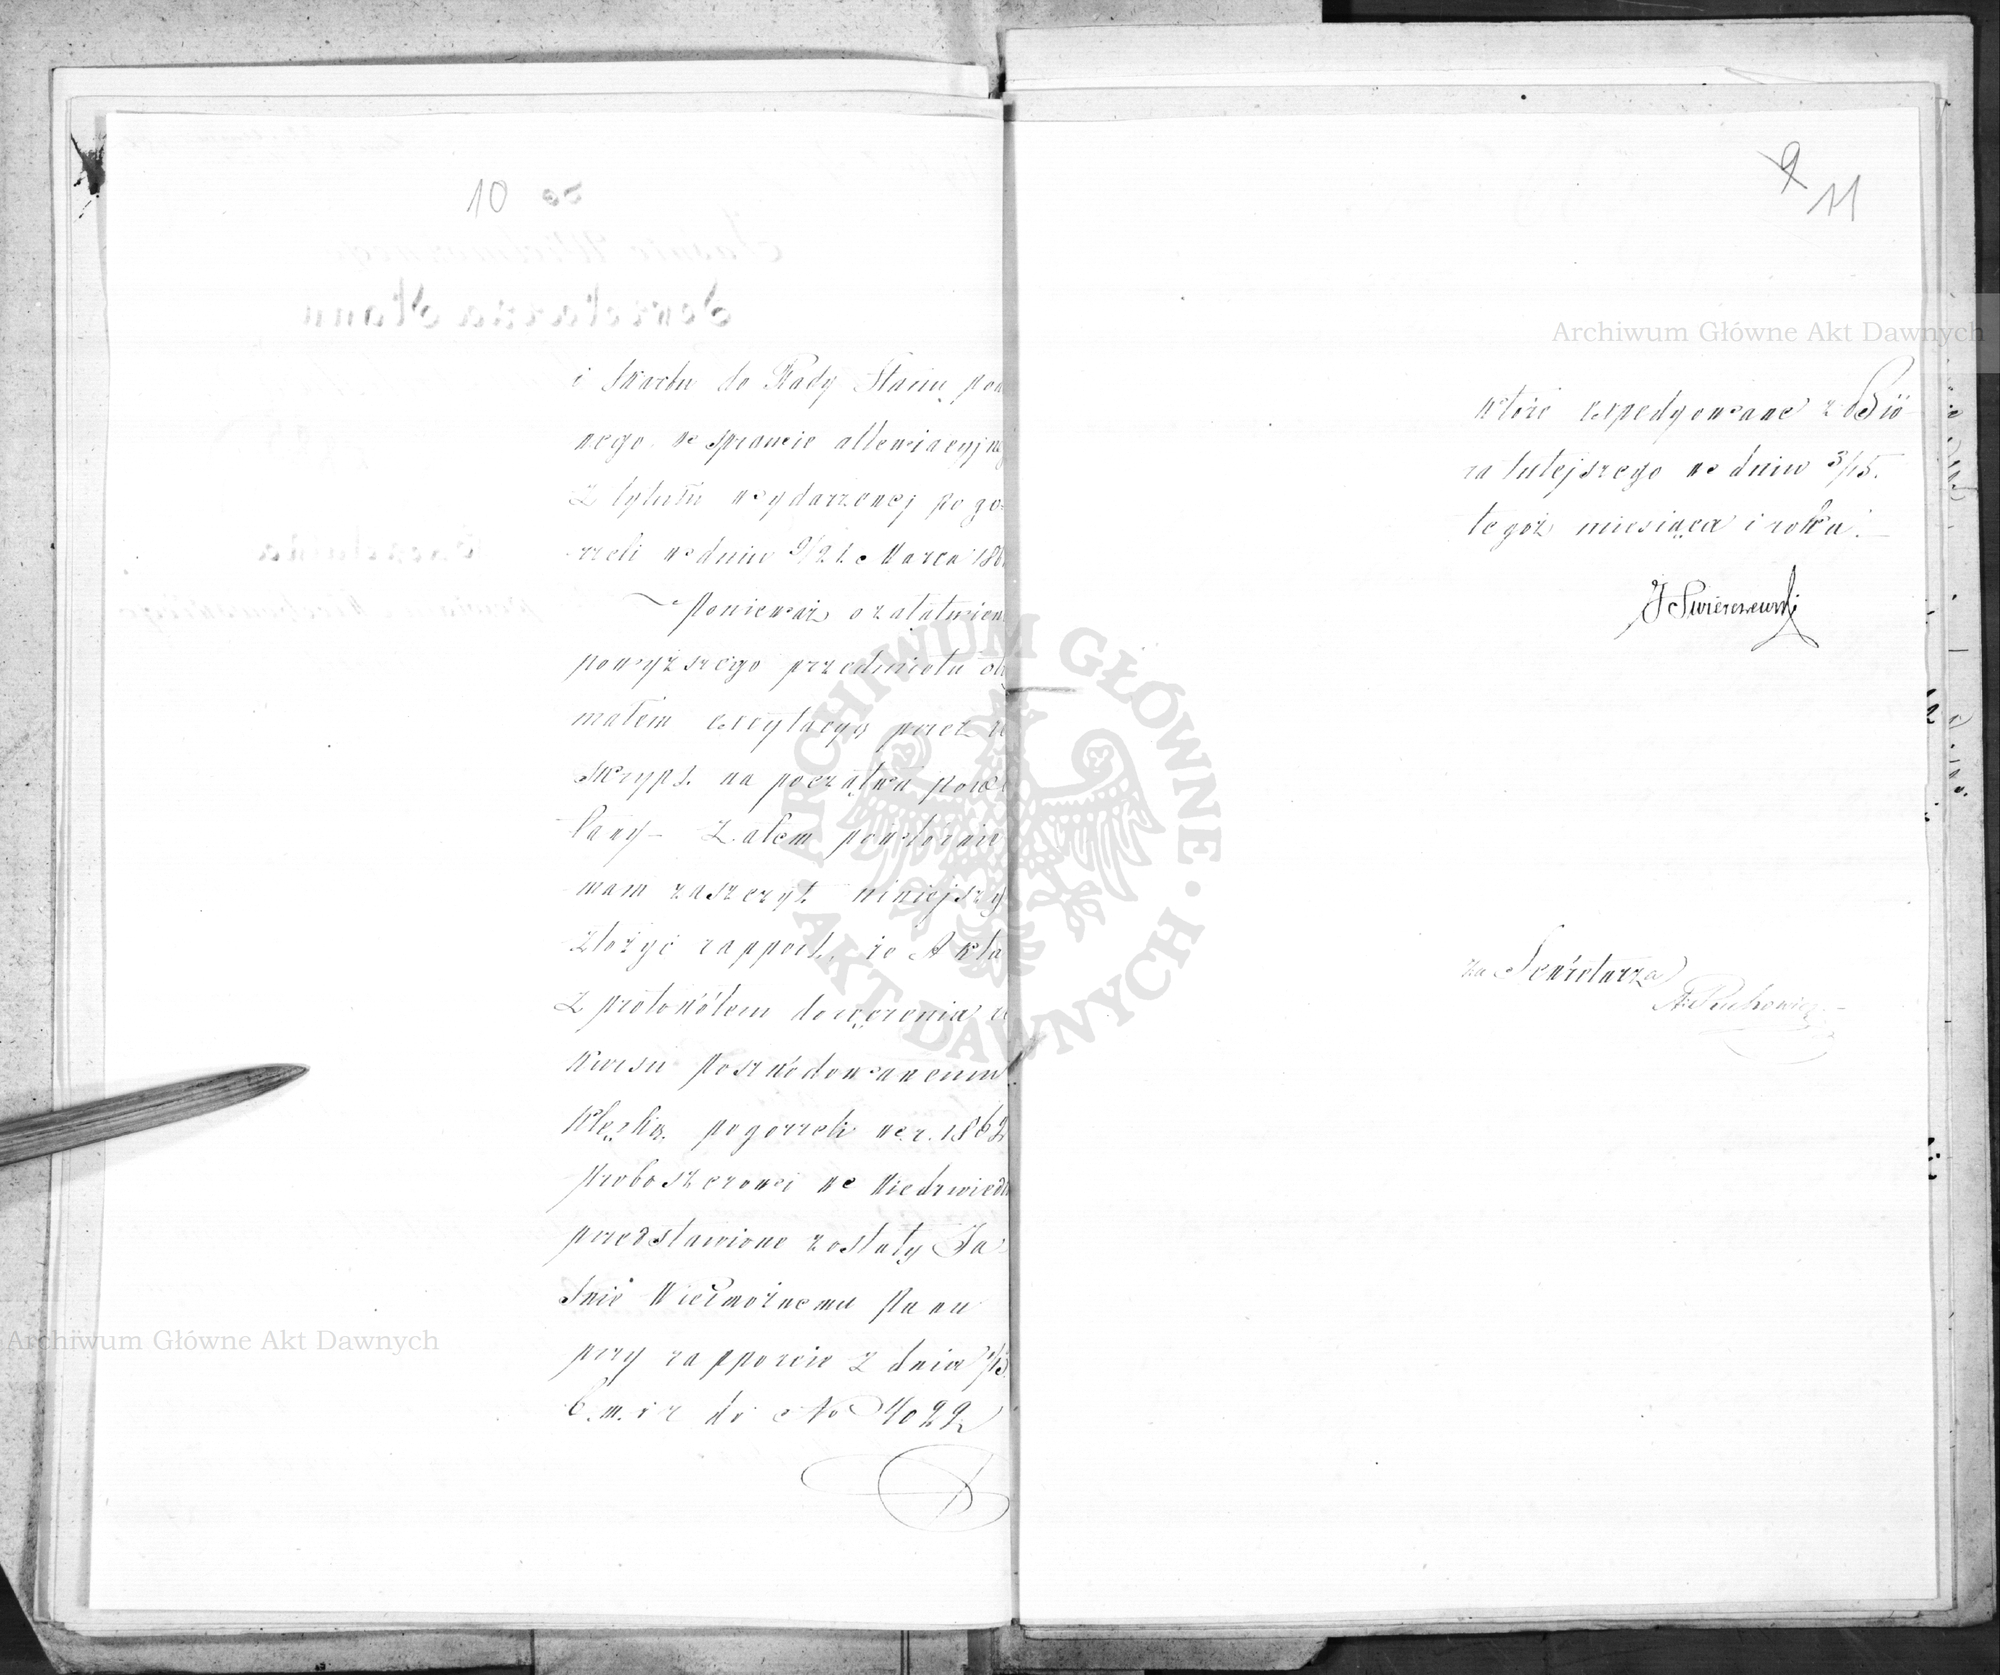 10
i Skarbu do Rady Stanu poda
nego w sprawie allewiacyjnej
z tytułu wydarzonej pogo-
rzeli w dniu 9/21. Marca 186
Ponieważ o załatwien
powyższego przedmiotu otrzy
małem excytacyą przez re
skrypt na początku powo
łany – Zatem powtórnie
mam zaszczyt niniejszy
złożyć rapport, że Akta
z protokółem doręczenia re
kursu poszkodowanemu
klęską pogorzeli w r. 1862
Proboszczowi we Niedzwiedz
przedstawione zostały Ja-
śnie Wielmożnemu Panu
przy rapporcie z dnia 1/13
b. m. i r. do No 4022
9
11
które expedyowane z Biō
ra tutejszego w dniu 3/15.
tegoż miesiąca i roku.
za Sekretarza
Archiwum Główne Akt Dawnych
Archiwum Główne Akt Dawnych
ARCHIWUM GŁÓWNE
AKT DAWNYCH